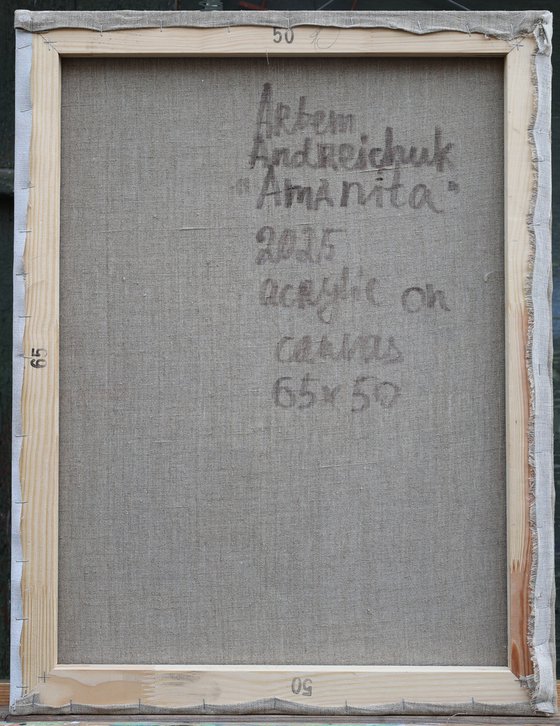 50
Artem
Andreichuk
"Amanita"
2025
acrylic on
canvas
65x50
65
50